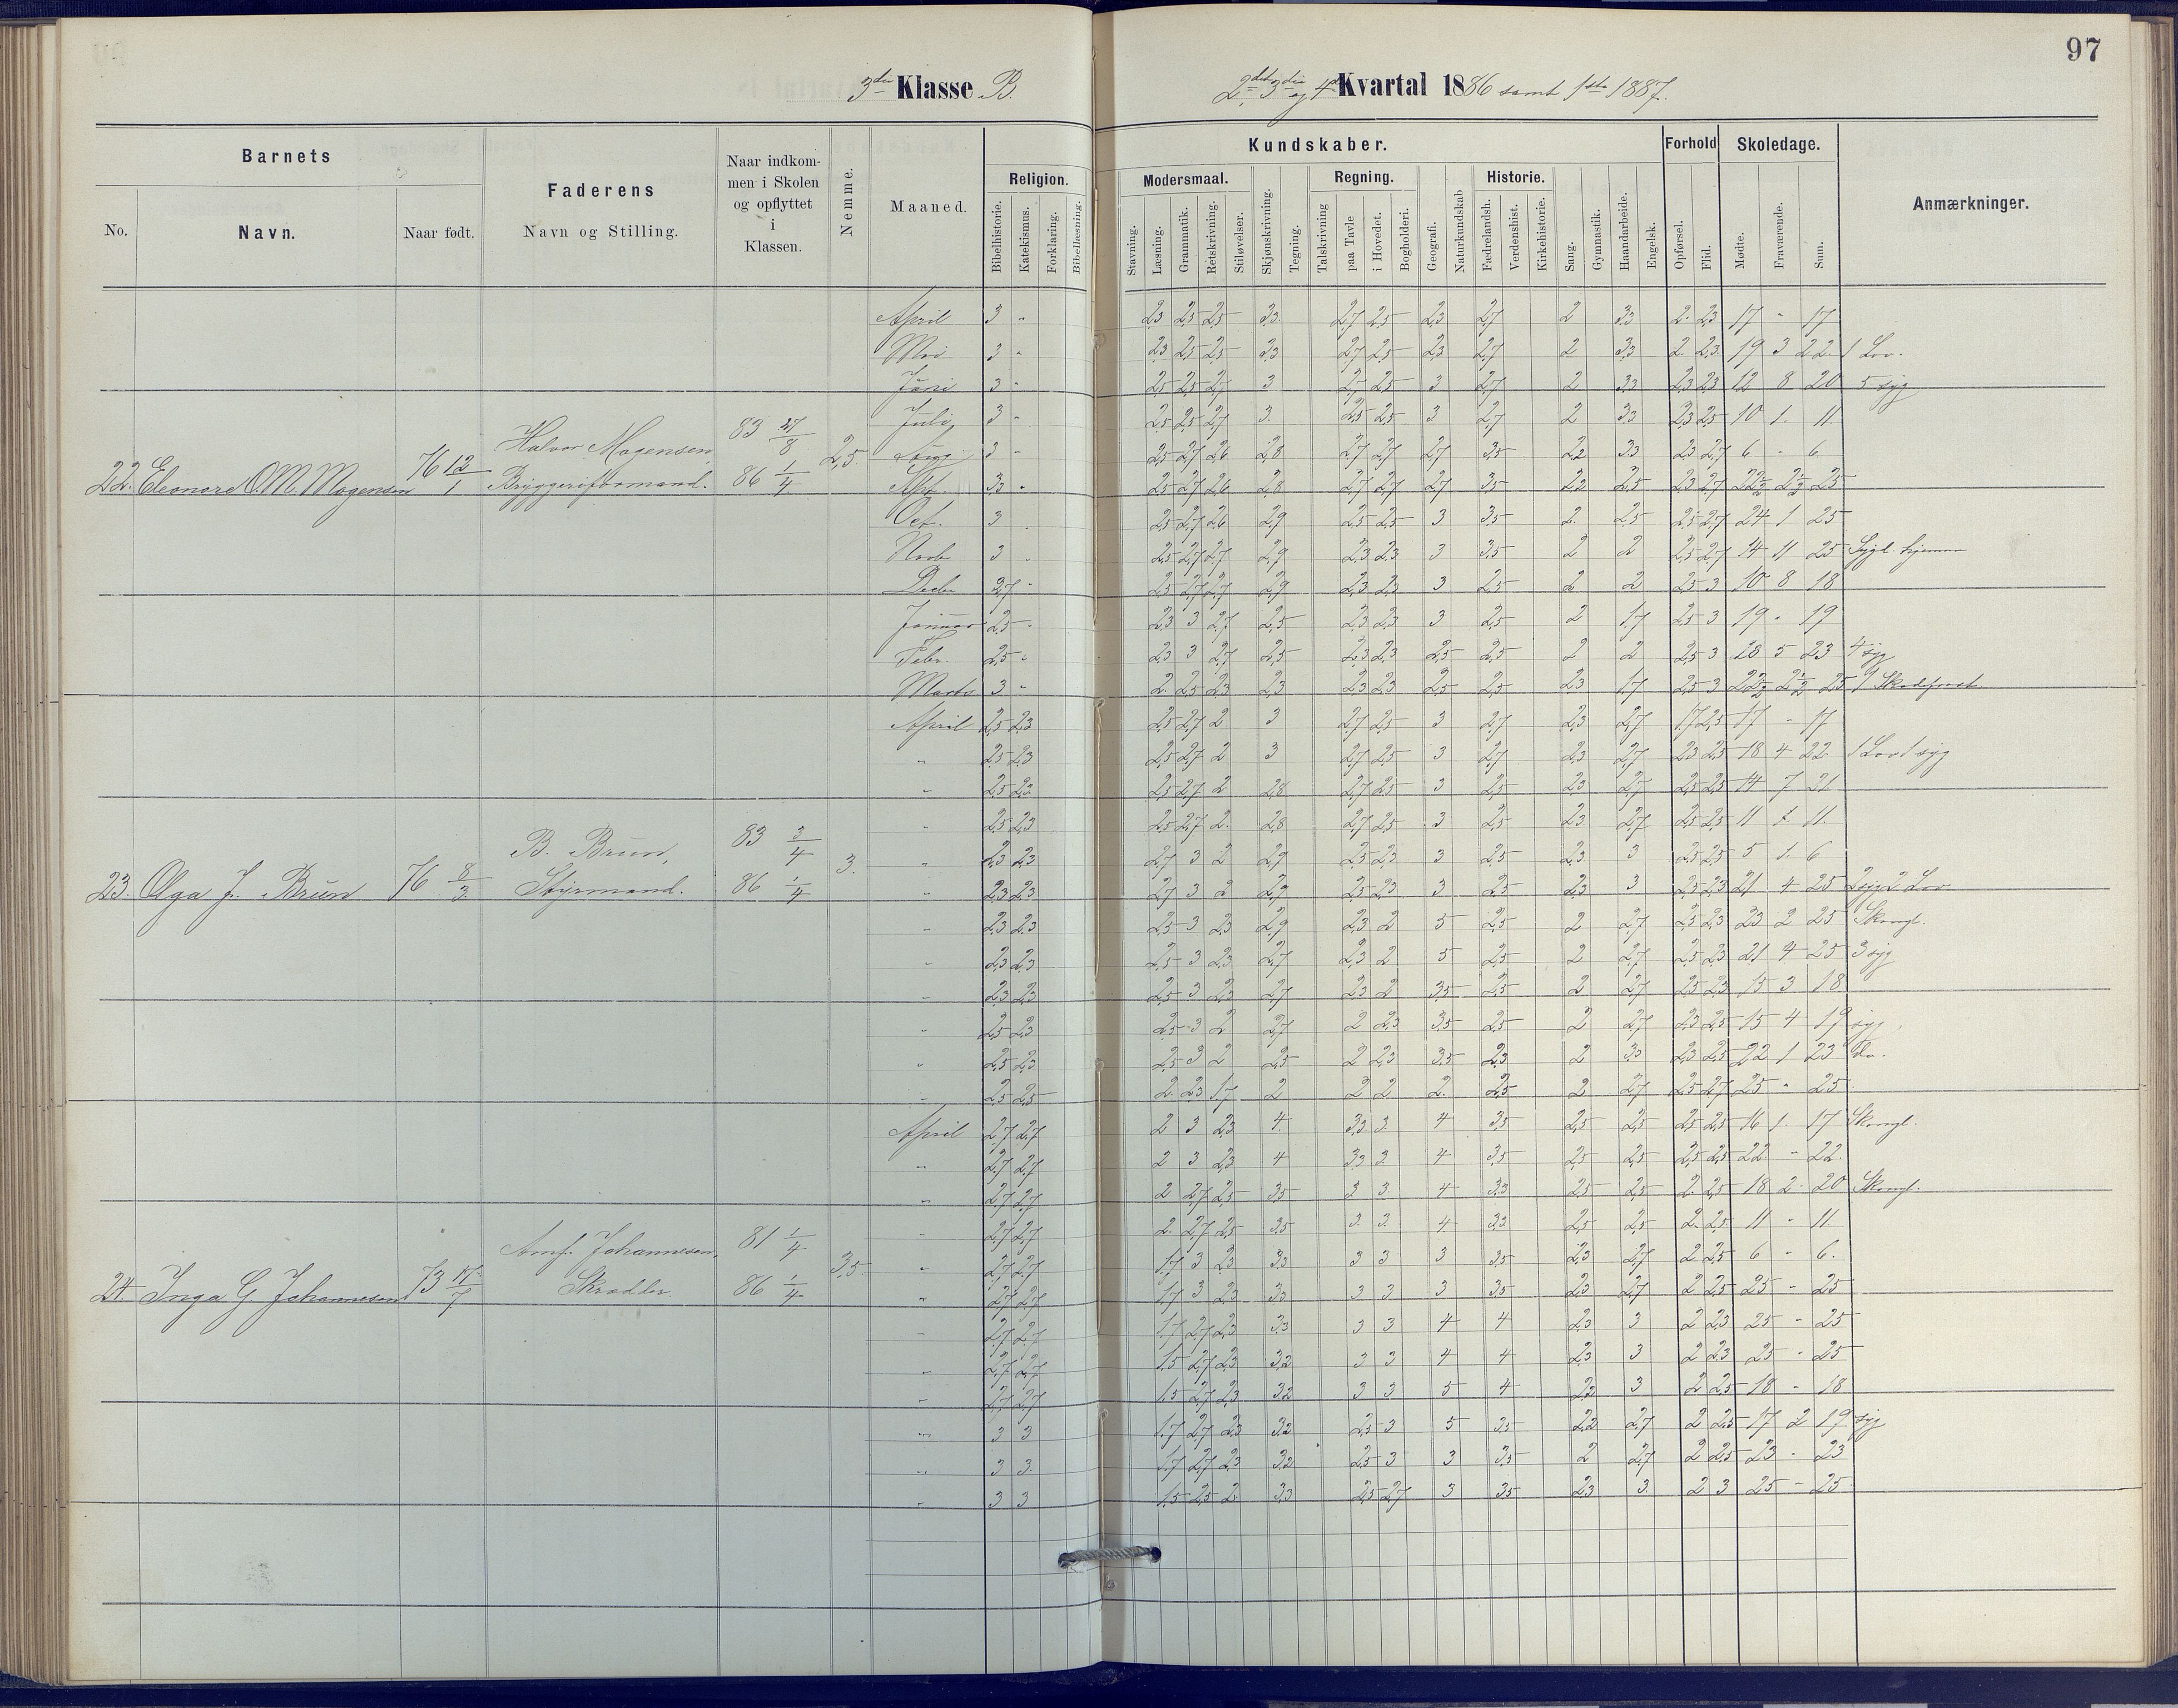 97
3die Klasse B.
2det, 3die og 4de Kvartal 1886 samt 1ste 1887.
Barnets
Faderens
Navn og Stilling.
Naar indkom-
men i Skolen
og opflyttet
i
Klassen.
Nemme.
Maaned.
Kundskaber.
Forhold
Skoledage.
Anmærkninger.
No.
Navn.
Naar født.
Religion.
Modersmaal.
Regning.
Historie.
Bibelhistorie.
Katekismus.
Forklaring.
Bibellæsning.
Stavning.
Læsning.
Grammatik.
Retskrivning.
Stiløvelser.
Skjønskrivning.
Tegning.
Talskrivning
paa Tavle
i Hovedet.
Bogholderi.
Geografi.
Naturkundskab
Fædrelandsh.
Verdenshist.
Kirkehistorie.
Sang.
Gymnastik.
Haandarbeide.
Engelsk.
Opførsel.
Flid.
Mødte.
Fraværende.
Sum.
April 3 - 2,3 2,5 2,5 3,3 2,7 2,5 2,3 2,7 2 3,3 2 2,3 17 - 17
Mai 3 - 2,3 2,5 2,5 3,3 2,7 2,5 2,3 2,7 2 3,3 2 2,3 19 3 22 1 Lov.
Juni 3 - 2,5 2,5 2,7 3 2,7 2,5 3 2,7 2 3,3 2,3 2,3 12 8 20 5 syg
Juli 3 - 2,5 2,5 2,7 3 2,5 2,5 3 2,7 2 3,3 2,3 2,5 10 1 11
Aug 3 - 2,5 2,7 2,6 2,8 2,7 2,7 2,7 3,5 2,2 3,3 2,3 2,7 6 - 6
22. Eleonore O. M. Mogensen 76 12/1 Halvor Mogensen, Bryggeriformand. 83 27/8 86 1/4 2,5
3,3 - 2,5 2,7 2,6 2,8 2,7 2,7 2,7 3,5 2,2 2,5 2,3 2,7 22½ 2½ 25
Oct. 3 - 2,5 2,7 2,6 2,9 2,5 2,5 3 3,5 2 2,5 2,5 2,7 24 1 25
Novb 3 - 2,5 2,7 2,7 2,9 2,3 2,3 3 3,5 2 2 2,5 2,7 14 11 25 Sygl. hjemme
Decbr 2,7 - 2,5 2,7 2,7 2,9 2,3 2,3 3 2,5 2 2 2,5 3 10 8 18
Januar 2,5 - 2,3 3 2,7 2,5 2,3 2,3 3 2,5 2 1,7 2,5 3 19 - 19
Febr. 2,5 - 2,3 3 2,7 2,5 2,3 2,3 2,5 2,5 2 2 2,5 3 18 5 23 4 syg
Marts 3 - 2 2,5 2,3 2,3 2,3 2,3 2,5 2,5 2,3 1,7 2,5 3 22½ 2½ 25
April 2,5 2,3 2,5 2,7 2 3 2,7 2,5 3 2,7 2,3 2,7 1,7 2,5 17 - 17
" 2,5 2,3 2,5 2,7 2 3 2,7 2,5 3 2,7 2,3 2,7 2,3 2,5 18 4 22 1 Lov 1 syg
" 2,5 2,3 2,5 2,7 2 2,8 2,7 2,5 3 2,5 2,3 2,7 2,5 2,5 14 7 21
" 2,5 2,3 2,5 2,7 2 2,8 2,7 2,5 3 2,5 2,3 2,7 2,5 2,5 11 - 11
" 2,3 2,3 2,7 3 2 2,9 2,5 2,3 3 2,5 2,3 3 2,5 2,5 5 1 6
23. Olga J. Bruun 76 8/3 B. Bruun, Styrmand. 83 3/4 86 1/4 3.
" 2,3 2,3 2,7 3 2 2,9 2,5 2,3 3 2,5 2,3 3 2,5 2,3 21 4 25 2 syg 2 Lov
" 2,3 2,3 2,5 3 2,3 2,9 2,3 2 5 2,5 2 2,7 2,5 2,3 23 2 25
" 2,3 2,3 2,5 3 2,3 2,7 2,3 2 5 2,5 2 2,7 2,5 2,3 21 4 25 3 syg
" 2,3 2,3 2,5 3 2,3 2,7 2,3 2 3,5 2,5 2 2,7 2,5 2,3 15 3 18
" 2,5 2,3 2,5 3 2 2,7 2 2,3 3,5 2,5 2 2,7 2,3 2,5 15 4 19 syg
" 2,5 2,3 2,5 3 2 2,5 2 2,3 3,5 2,3 2 3,3 2,3 2,5 22 1 23 do.
" 2,5 2,5 2 2,3 1,7 2 2 2 2 2,5 2 2,7 2,5 2,7 25 - 25
April 2,7 2,7 2 3 2,3 4 3,3 3 4 3,5 2,5 2,5 2,5 2,5 16 1 17
" 2,7 2,7 2 3 2,3 4 3,3 3 4 3,5 2,5 2,5 2,5 2,5 22 - 22
" 2,7 2,7 2 2,7 2,5 3,5 3 3 4 3,3 2,5 2,5 2 2,5 18 2 20
" 2,7 2,7 2 2,7 2,5 3,5 3 3 4 3,3 2,5 2,5 2 2,5 11 - 11
" 2,7 2,7 1,7 3 2,3 3,3 3 3 3 3,5 2,3 2,7 2 2,5 6 - 6
24. Inga G. Johannesen 73 17/7 Johannesen, Skrædder. 81 1/4 86 1/4 3,5
" 2,7 2,7 1,7 3 2,3 3,3 3 3 3 3,5 2,3 2,7 2 2,5 25 - 25
" 2,7 2,7 1,7 2,7 2,3 3,3 3 3 4 4 2,3 3 2 2,3 25 - 25
" 2,7 2,7 1,5 2,7 2,3 3,2 3 3 4 4 2,3 3 2 2,3 25 - 25
" 2,7 2,7 1,5 2,7 2,3 3,2 3 3 5 4 2,2 3 2 2,5 18 - 18
" 3 3 1,7 2,7 2,3 3,2 2,5 3 5 3,5 2,2 2,7 2 2,5 17 2 19 syg
" 3 3 1,7 2,7 2,3 3,2 2,5 3 3 3,5 2 2,7 2 2,5 23 - 23
" 3 3 1,5 2,5 2 3,3 2,5 2,7 3 3,5 2,3 3 2 3 25 - 25